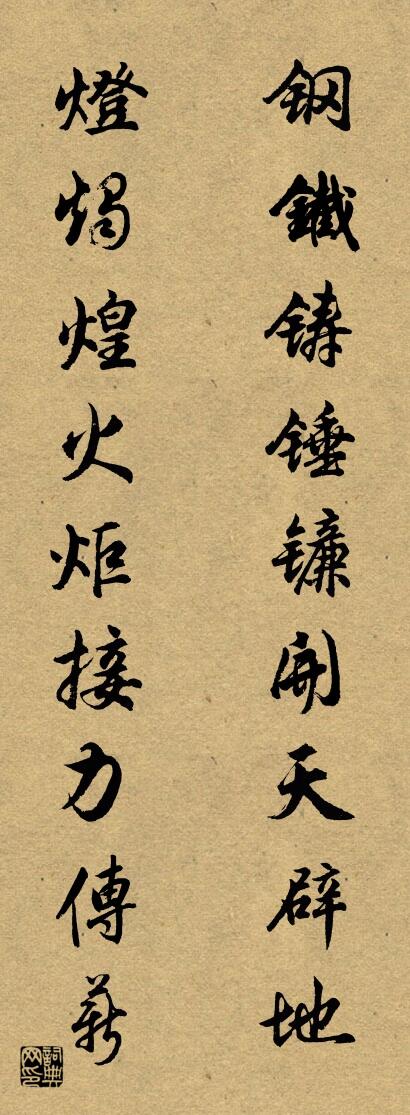 钢鐵铸锤镰開天辟地
燈燭煌火炬接力傳薪
詞典网印